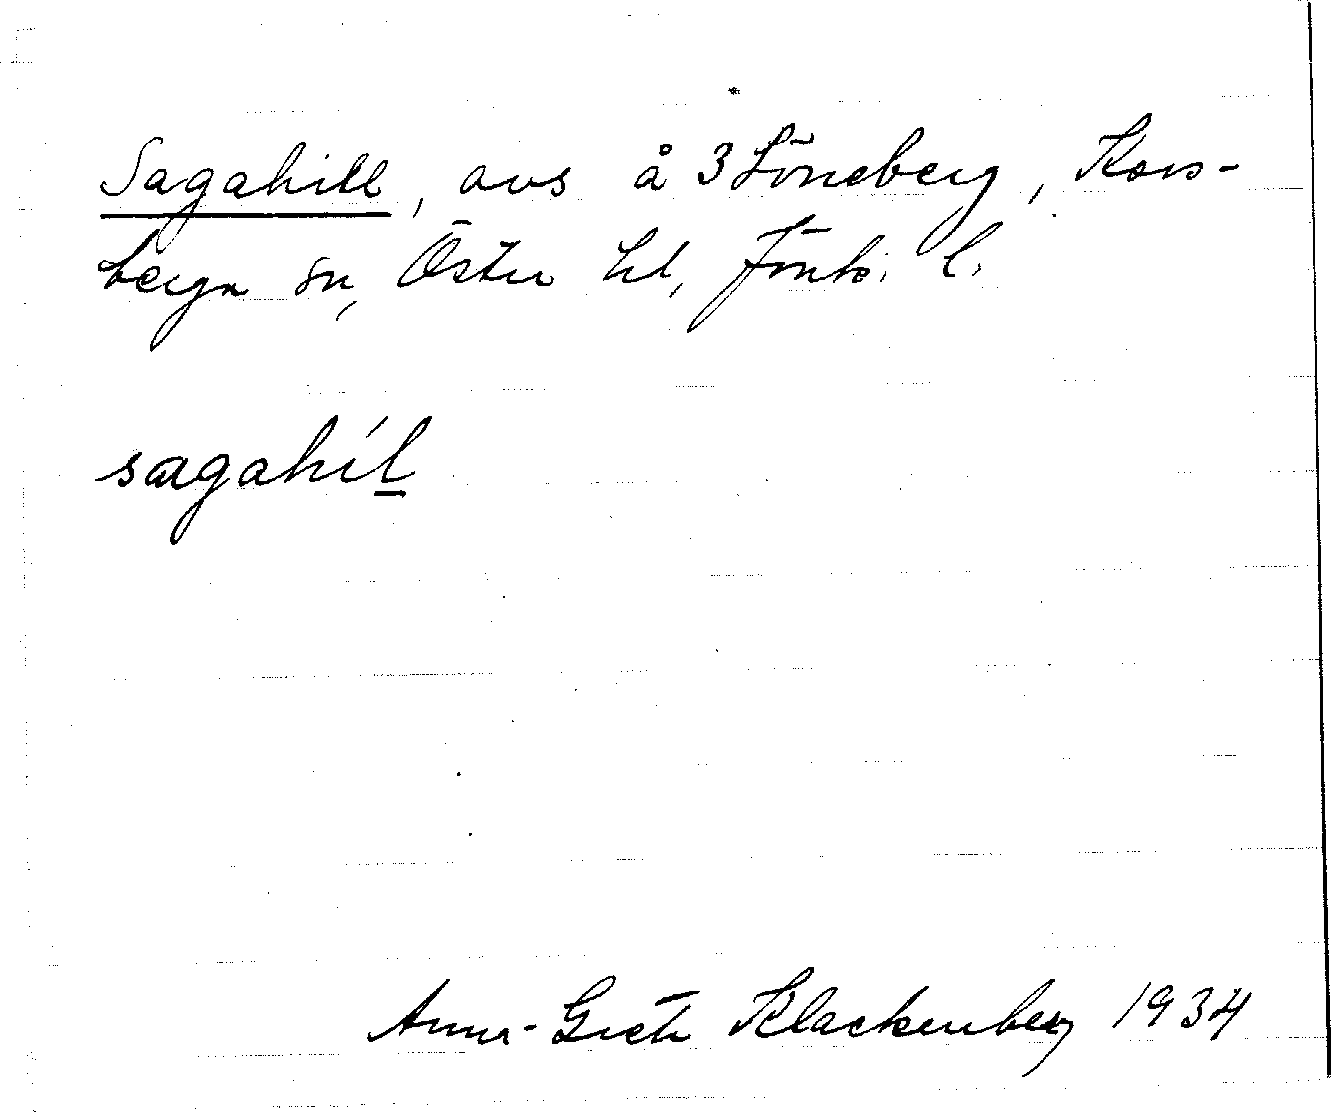 Sagahill, avs å 3 Löneberg, Kors-
berga sn, Östra hd, Jönk. l.
sagahíl
Anna-Greta Klackenberg 1934